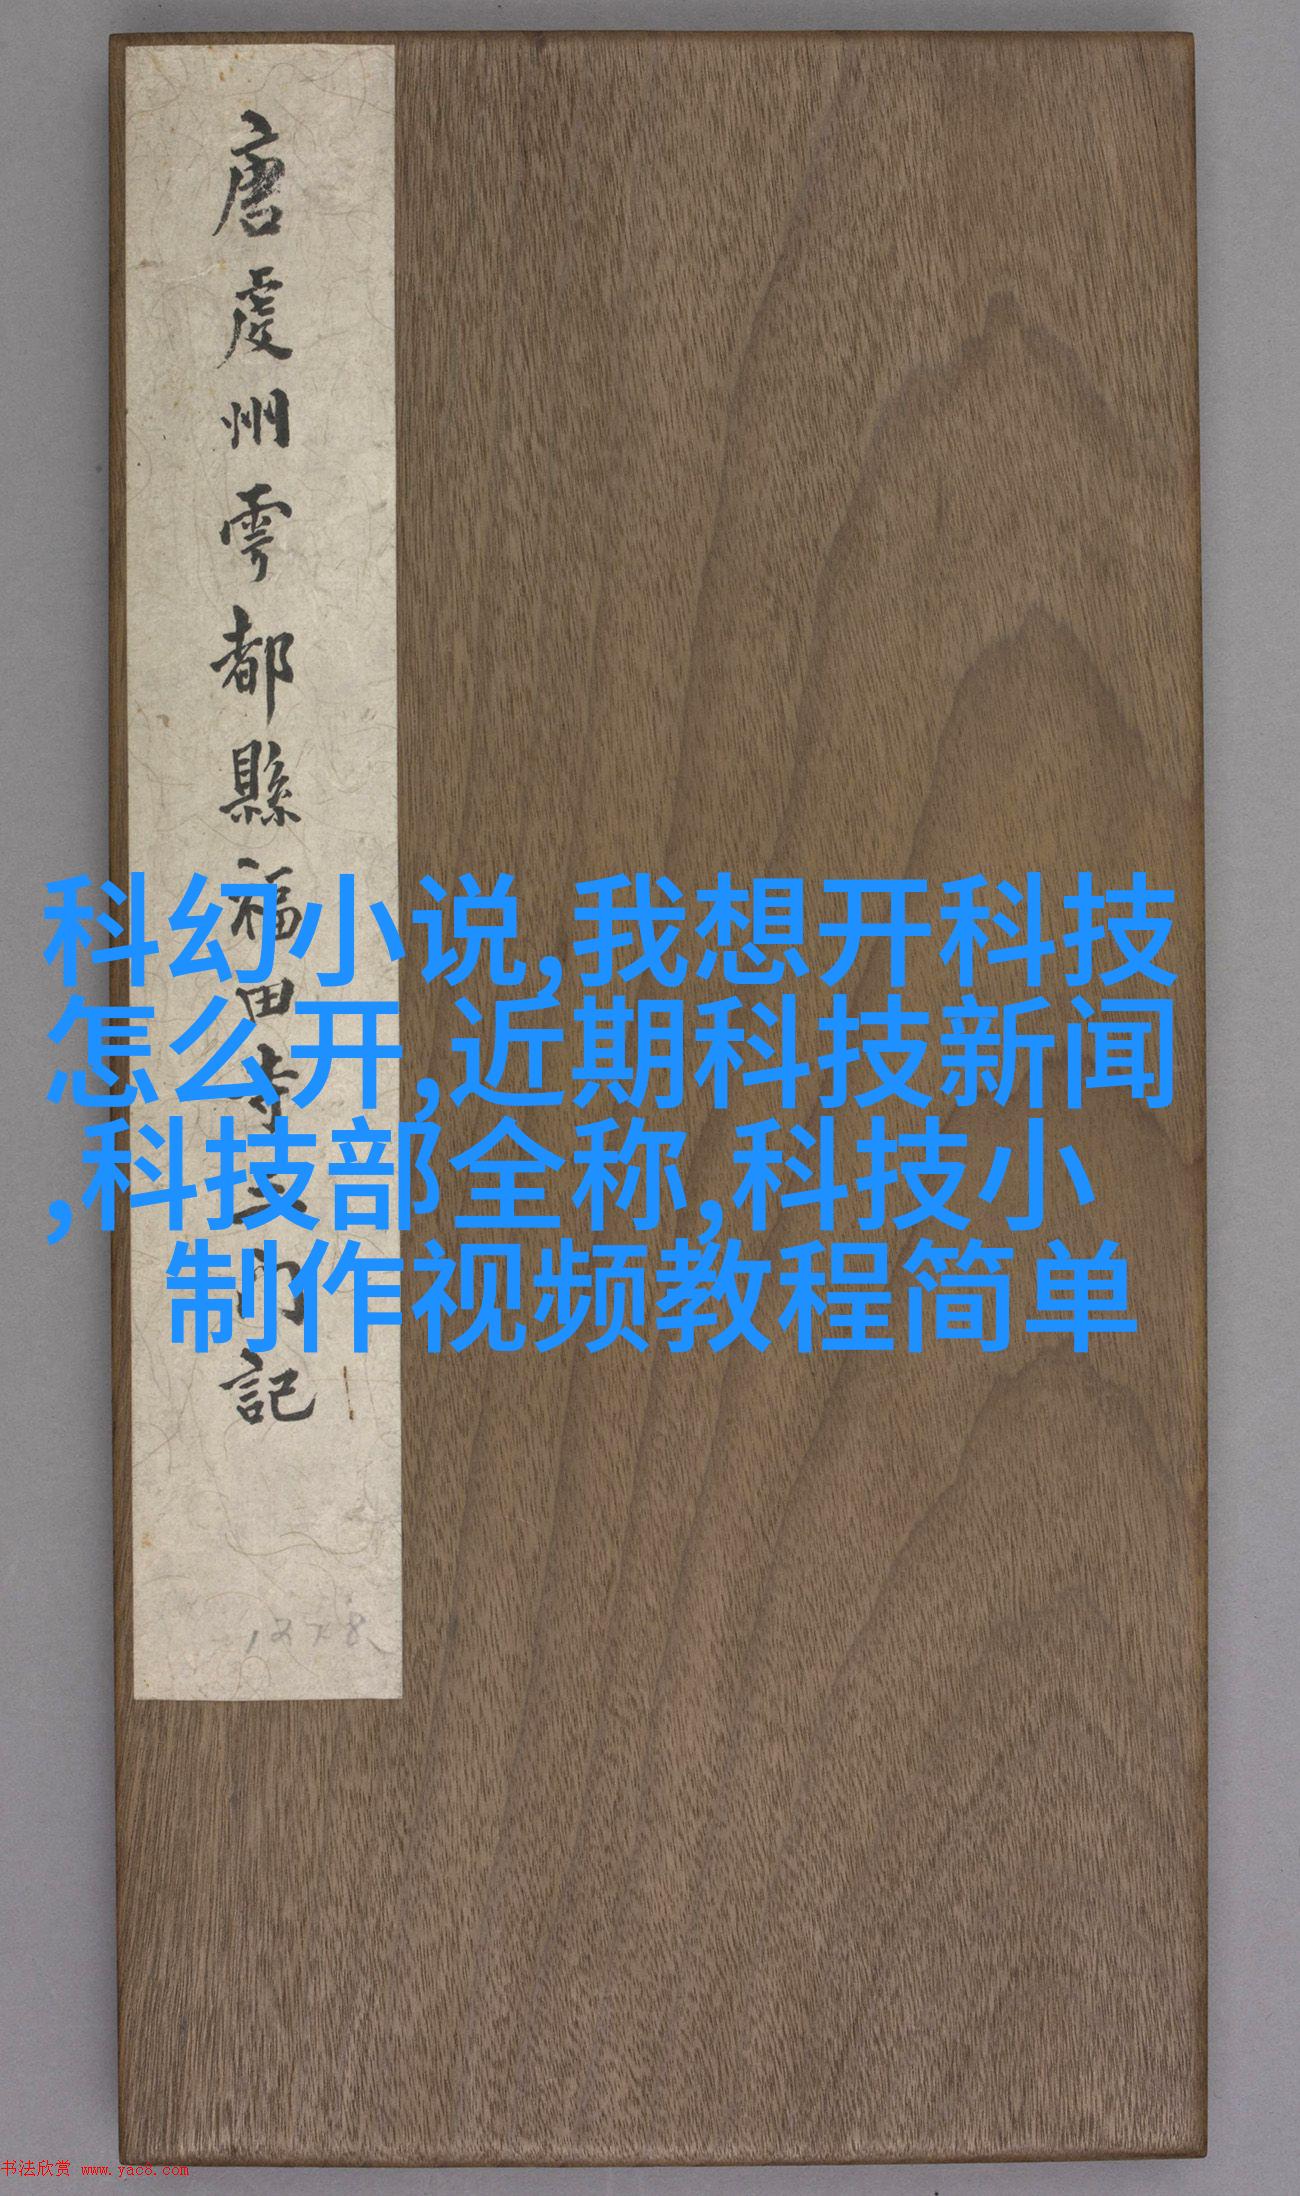 唐虔州雩都縣福田寺三門記
1278
科幻小说,我想开科技
怎么开,近期科技新闻
,科技部全称,科技小
制作视频教程简单
书法欣赏 www.yac8.com